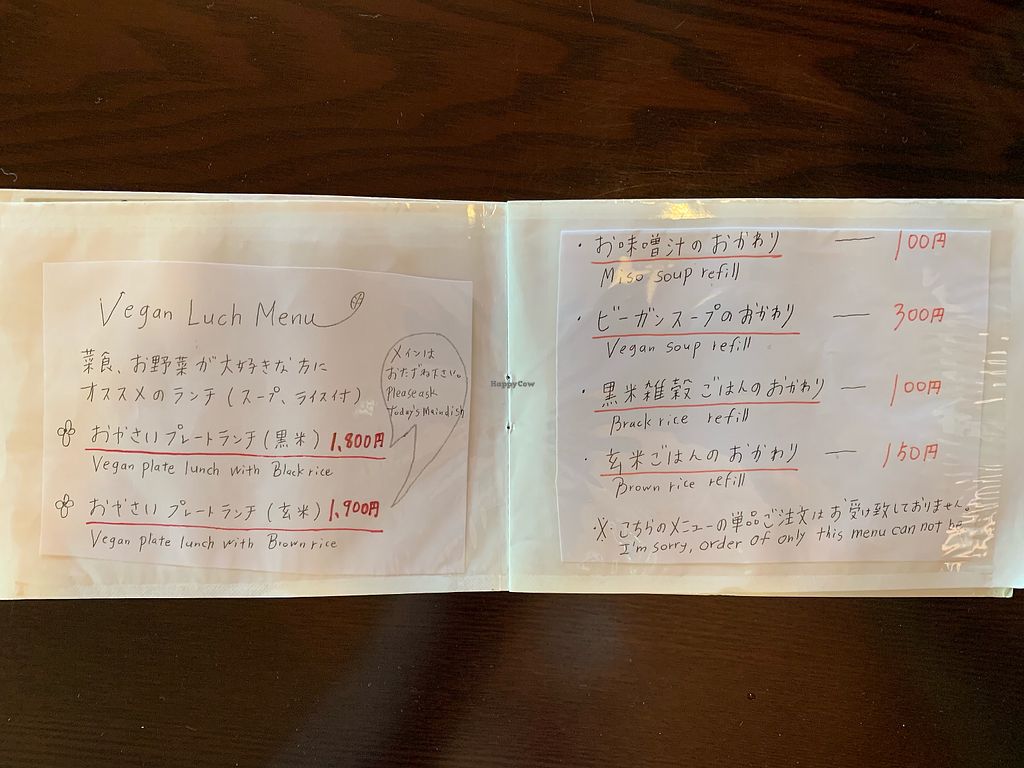 Vegan Luch Menu
菜食、お野菜が大好きな方に
オススメのランチ(スープ、ライス付)
おやさいプレートランチ(黒米) 1,800円
Vegan plate lunch with Black rice
おやさいプレートランチ(玄米) 1,900円
Vegan plate lunch with Brown rice
メインは
おたずね下さい。
Please ask
today's Main dish
・お味噌汁のおかわり — 100円
Miso soup refill
・ビーガンスープのおかわり — 300円
Vegan soup refill
・黒米雑穀ごはんのおかわり — 100円
Brack rice refill
・玄米ごはんのおかわり — 150円
Brown rice refill
※:こちらのメニューの単品ご注文はお受け致しておりません。
I'm sorry, order of only this menu can not be
HappyCow